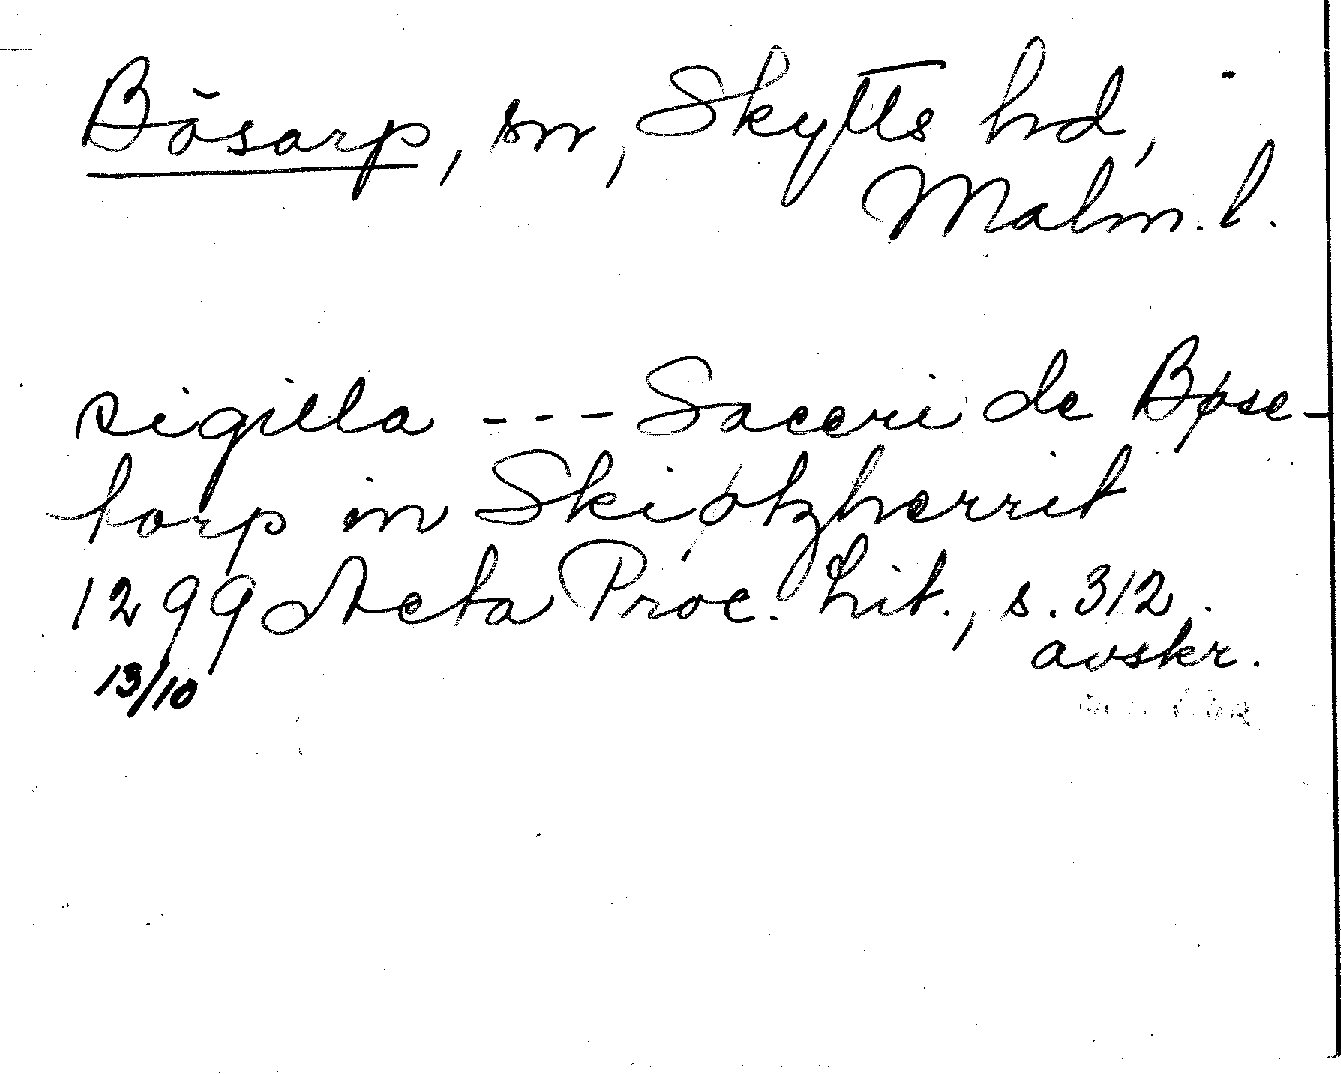 Bösarp, sn, Skytts hd,
Malm. l.
sigilla --- Saceri de Bøse-
torp in Skiøtzherrit
1299 Acta Proc. lit., s. 312.
avskr.
13/10